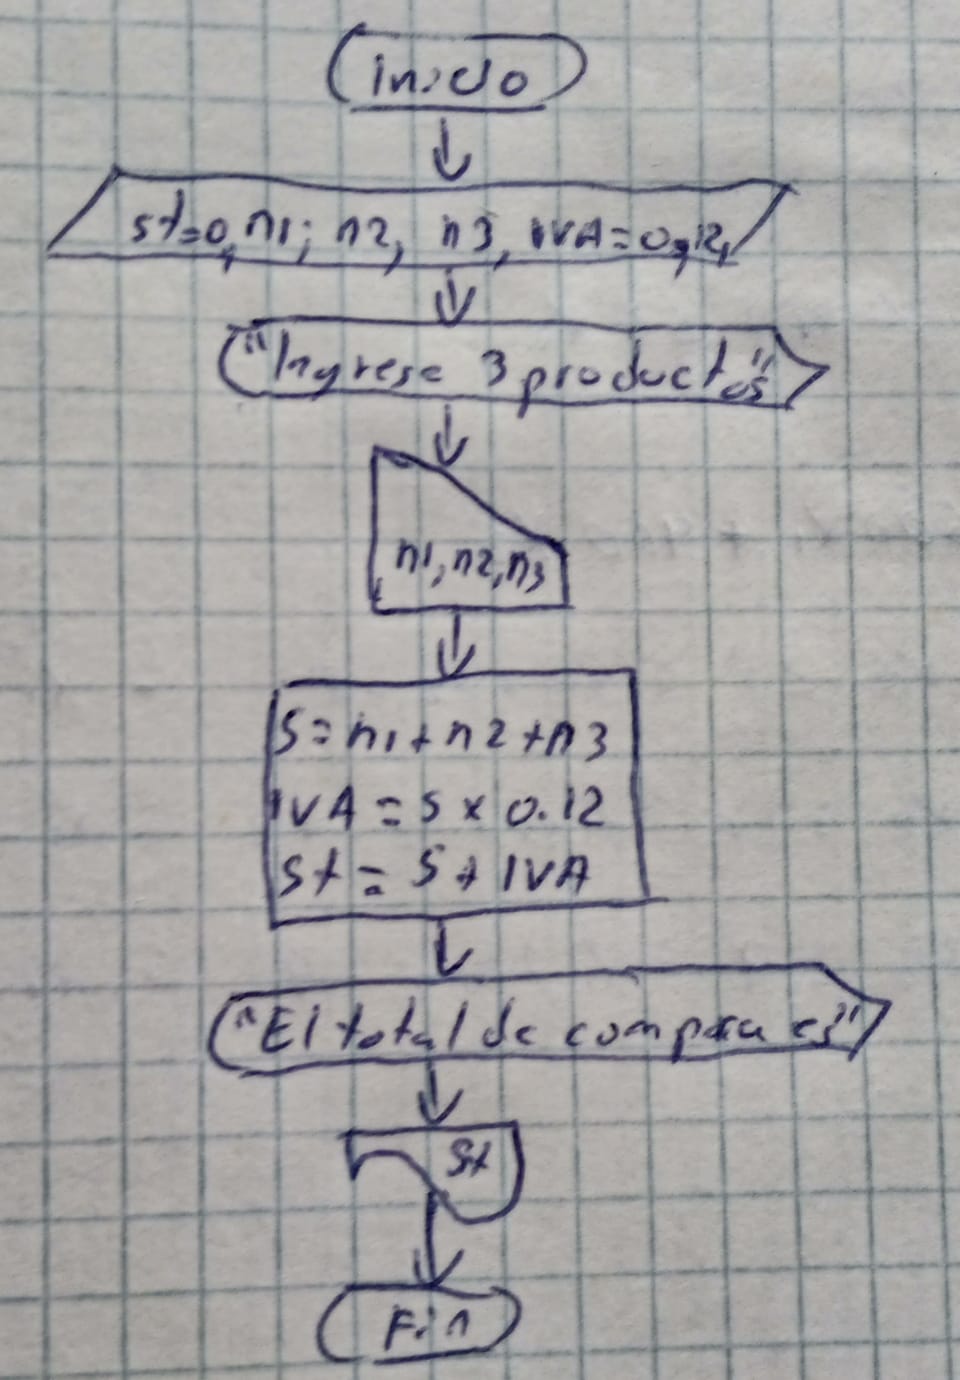 Inicio
st=0, n1; n2, n3, IVA=0,12,
"Ingrese 3 productos"
n1, n2, n3
S = n1 + n2 + n3
IVA = S x 0.12
St = S + IVA
"El total de compra es"
St
Fin